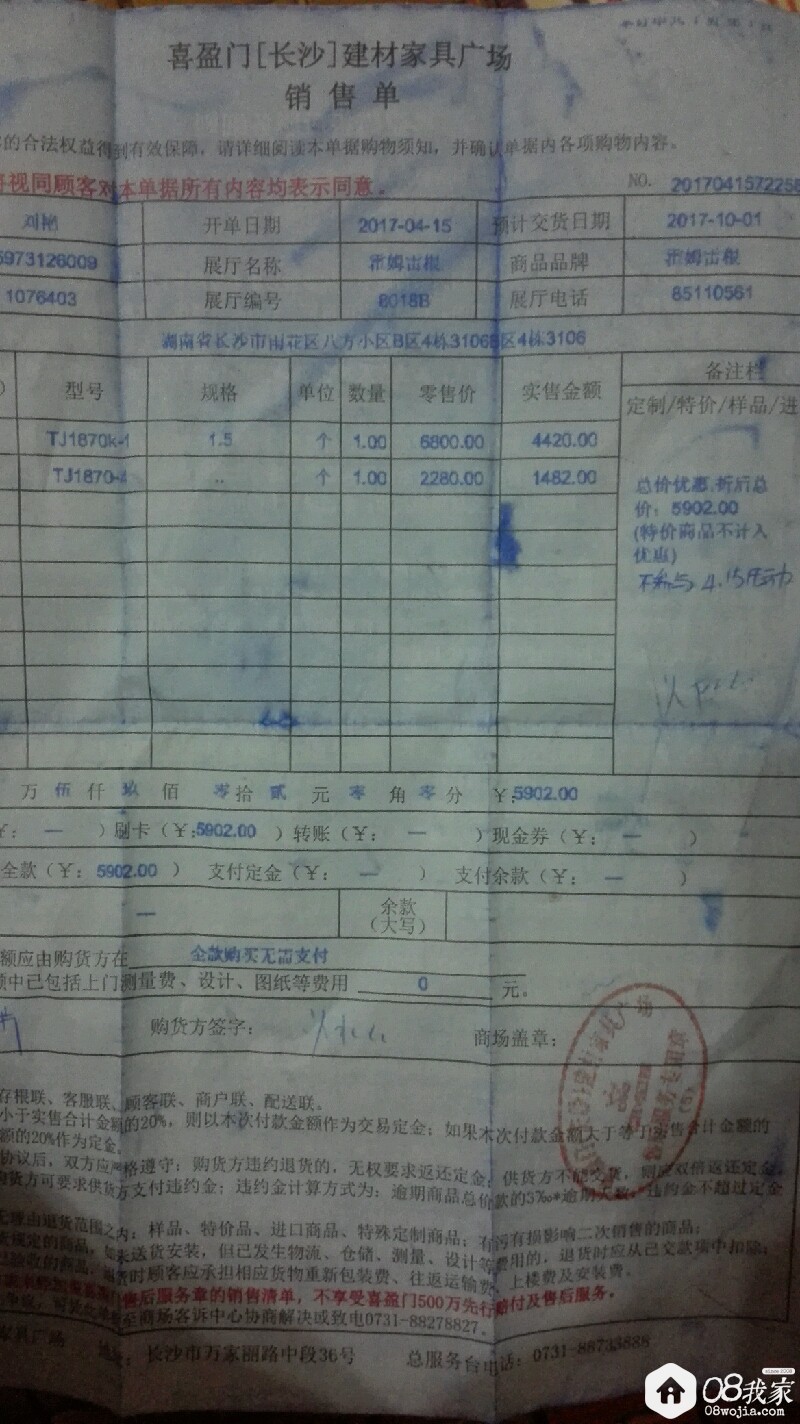 喜盈门[长沙]建材家具广场
销售单
的合法权益得到有效保障，请详细阅读本单据购物须知，并确认单据内各项购物内容。
视同顾客对本单据所有内容均表示同意。
NO. 2017041572256
开单日期 2017-04-15 预计交货日期 2017-10-01
5973126009 展厅名称 霍姆吉根 商品品牌 霍姆吉根
1076403 展厅编号 8018B 展厅电话 85110561
湖南省长沙市雨花区八方小区B区4栋3106B区4栋3106
型号 规格 单位 数量 零售价 实售金额 备注栏
定制/特价/样品/进
TJ1870k-1 1.5 个 1.00 6800.00 4420.00
TJ1870-4 .. 个 1.00 2280.00 1482.00
总价优惠,折后总
价：5902.00
(特价商品不计入
优惠)
不参与4.15活动
万 伍 仟 玖 佰 零 拾 贰 元 零 角 零 分 ¥:5902.00
¥: — ）刷卡（¥:5902.00 ）转账（¥: — ）现金券（¥: — ）
全款（¥: 5902.00 ） 支付定金（¥: — ） 支付余款（¥: — ）
— 余款
（大写）
额应由购货方在 全款购买无需支付
额中已包括上门测量费、设计、图纸等费用 0 元。
购货方签字： 商场盖章：
存根联、客服联、顾客联、商户联、配送联。
小于实售合计金额的20%，则以本次付款金额作为交易定金；如果本次付款金额大于等于实售合计金额的
额的20%作为定金。
协议后，双方应严格遵守；购货方违约退货的，无权要求返还定金，供货方不能交货，则应双倍返还定金，
购货方可要求供货方支付违约金；违约金计算方式为：逾期商品总价款的3‰*逾期天数，违约金不超过定金
无理由退货范围之内：样品、特价品、进口商品、特殊定制商品；有污有损影响二次销售的商品；
规定的商品，如未送货安装，但已发生物流、仓储、测量、设计等费用的，退货时应从已交款项中扣除；
验收的商品，退货时顾客应承担相应货物重新包装费、往返运输费、上楼费及安装费。
售后服务章的销售清单，不享受喜盈门500万先行赔付及售后服务。
至商场客诉中心协商解决或致电0731-88278827。
家具广场 地址：长沙市万家丽路中段36号 总服务台电话：0731-88733888
08我家
08wojia.com